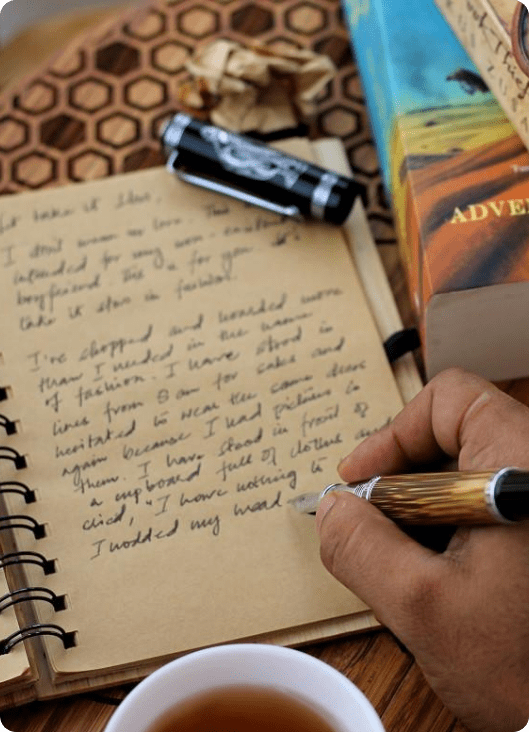 take it slow.
I don't wanna
intended for my non-
boyfriend. for you
take it slow in fashion.
I've shopped and hoarded more
than I needed in the name
of fashion. I have stood in
lines from 8 am for sales and
hesitated to wear the same dress
again because I had pictures in
them. I have stood in front of
a cupboard full of clothes and
cried, "I have nothing to
I nodded my head
ADVEN